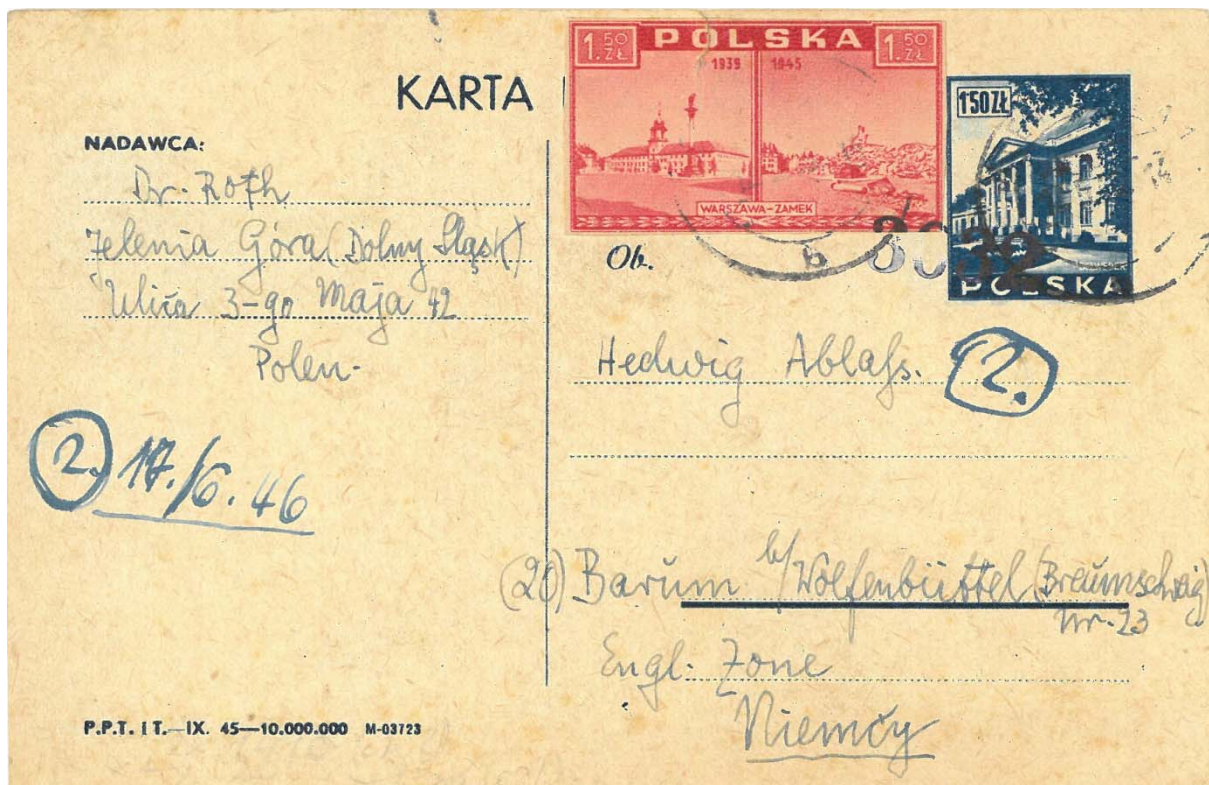 KARTA
NADAWCA:
Dr. Roth
Jelenia Góra (Dolny Śląsk)
Ulica 3-go Maja 42
Polen.
2. 17./6. 46
P.P.T. i T.—IX. 45—10.000.000 M-03723
1.50 ZŁ POLSKA 1.50 ZŁ
1939 1945
WARSZAWA-ZAMEK
1.50 ZŁ
POLSKA
Ob.
b
Hedwig Ablaß.
2.
(20) Barum b/Wolfenbüttel (Braunschweig)
Nr. 23
Engl. Zone
Niemcy